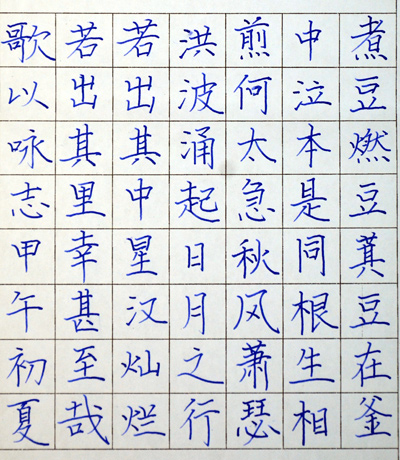 煮豆燃豆萁豆在釜
中泣本是同根生相
煎何太急秋风萧瑟
洪波涌起日月之行
若出其中星汉灿烂
若出其里幸甚至哉
歌以咏志甲午初夏